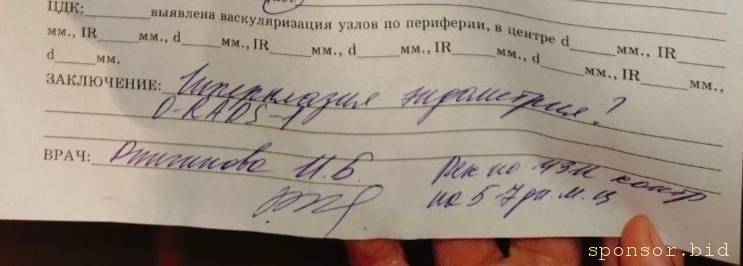 ЦДК:______ выявлена васкуляризация узлов по периферии, в центре d_____ мм., IR_____
мм., IR_____мм., d_____мм., IR_____мм., d_____мм., IR_____мм., d_____мм., IR_____мм.,
d_____мм.
ЗАКЛЮЧЕНИЕ: Гиперплазия эндометрия?
O-RADS-1
ВРАЧ: И.Б.
УЗИ контр
на 5-7 дн. м.ц.
sponsor.bid